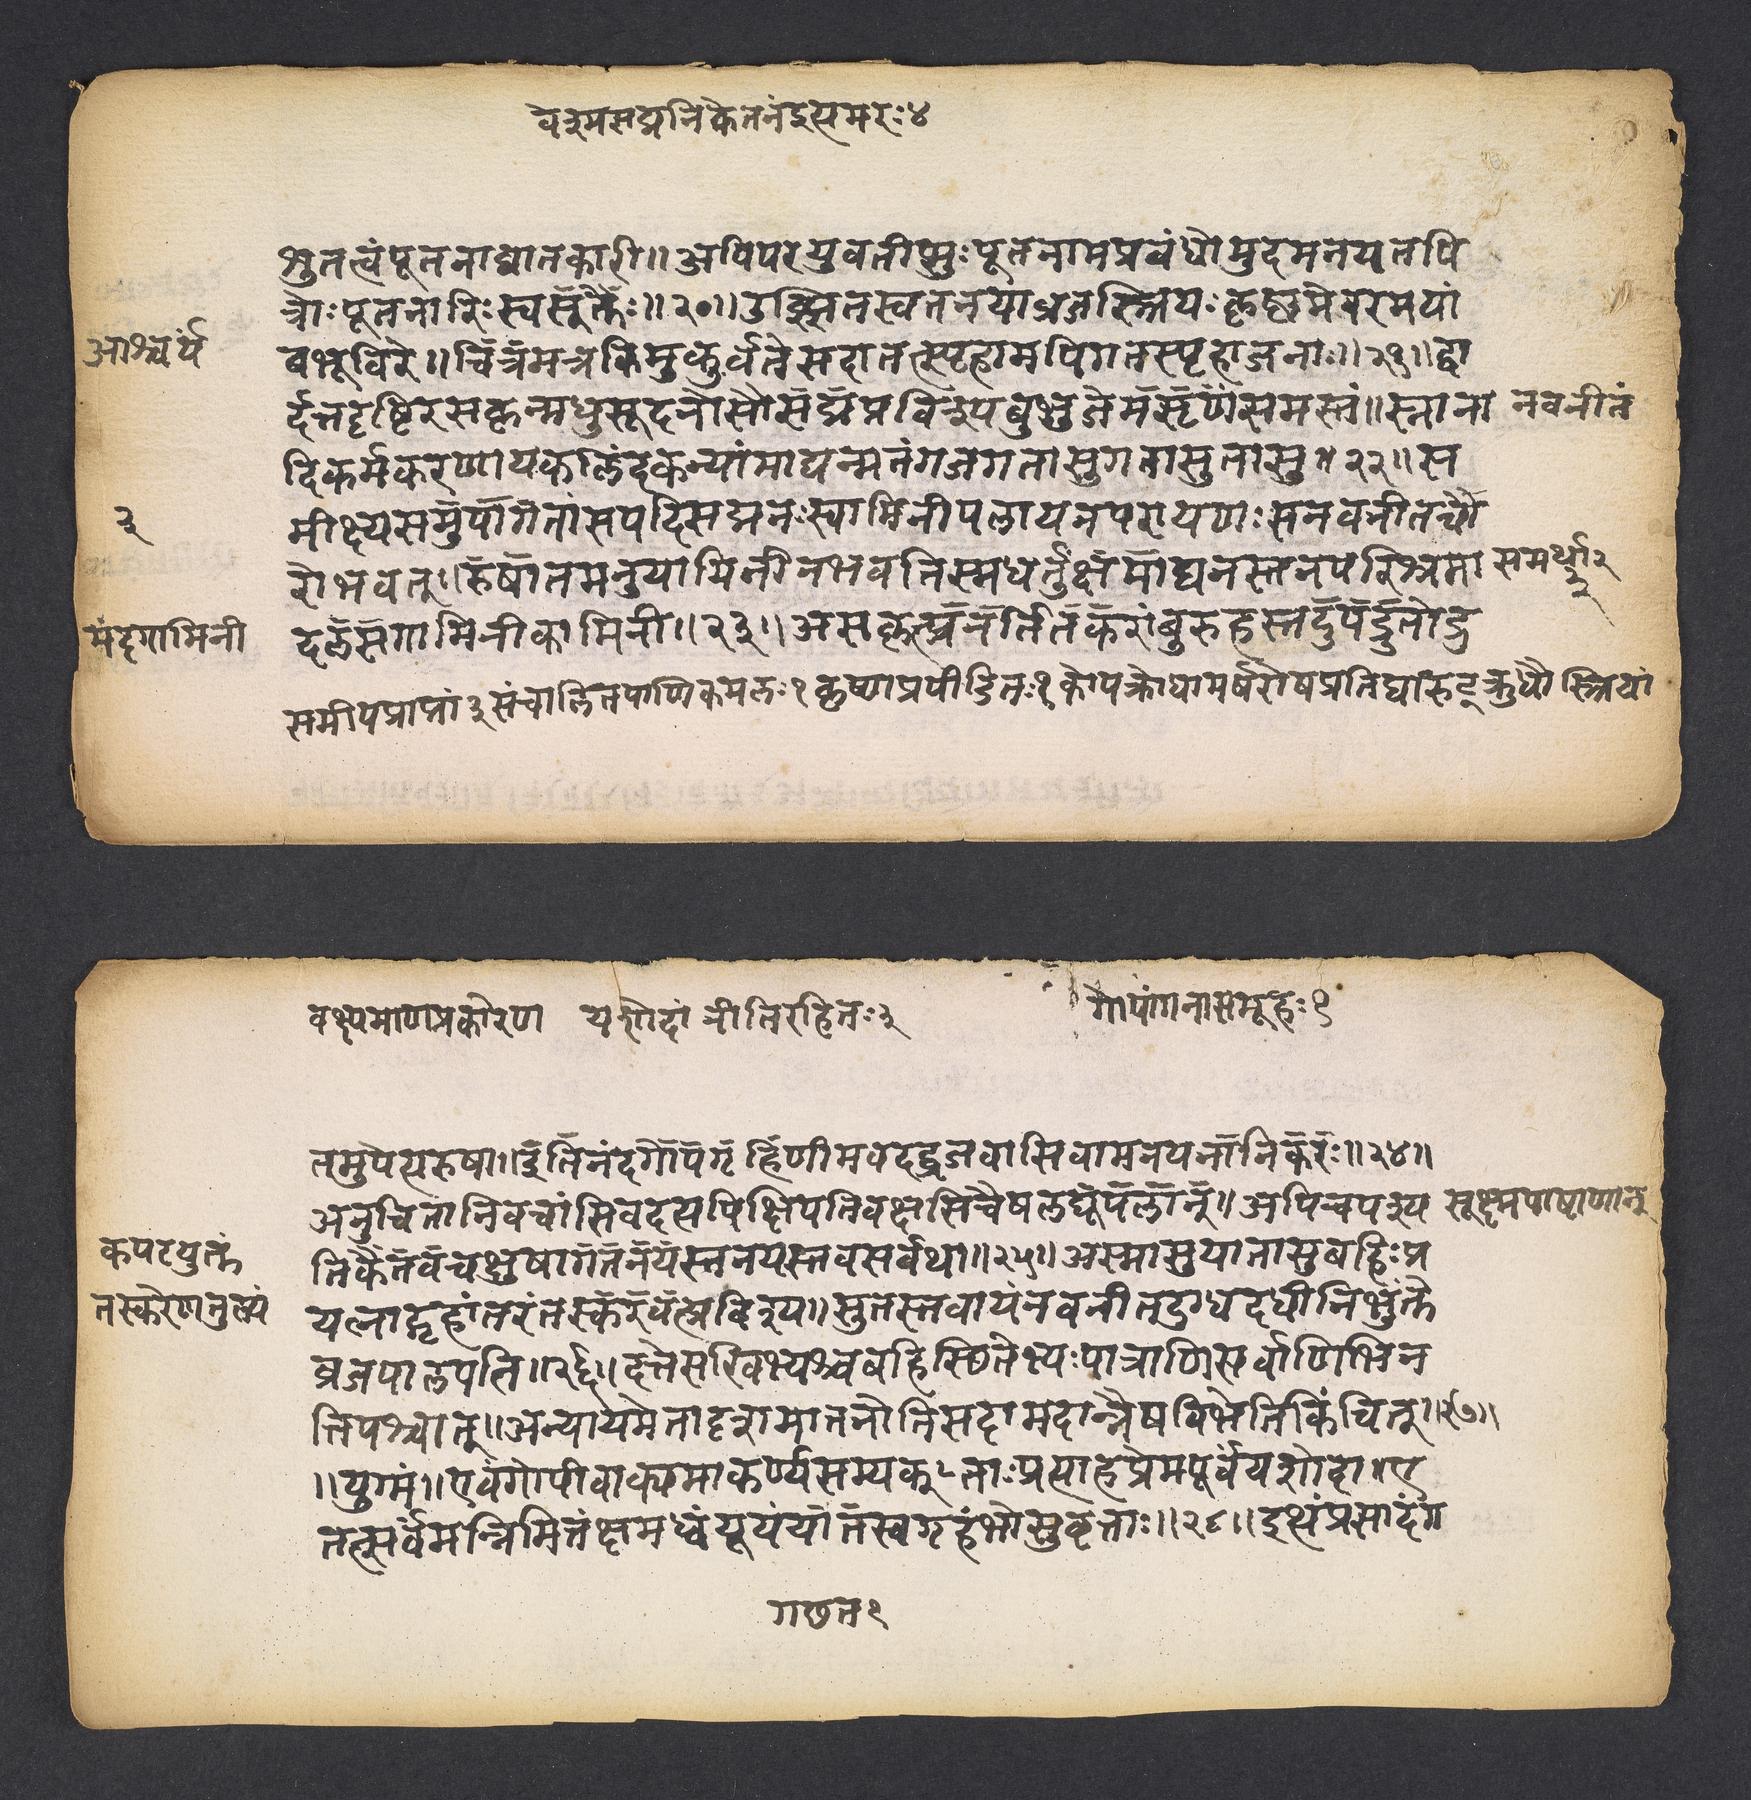 वेश्मसद्मनिकेतनंइत्यमरः४
श्रुतत्वंपूतनाद्यातकारी॥अपिपरयुवतीषुःपूतनामप्रबंधोमुदमनयतपि
त्रोःपूतनारिःस्वसूक्तैः॥२०॥उझ्झितस्वतनयाव्रजस्त्रियःकृष्णमेवरमयां
आश्चर्यं
बभूविरे॥चित्रमत्रकिमुकुर्वतेसदातत्स्पृहामपिगतस्पृहाजनाः॥२१॥द्वा
र्दत्तदृष्टिरसकृन्मधुसूदनोसौसद्मप्रविश्यबुभुजेमसृणंसमस्तं॥स्नाना
नवनीतं
दिकर्मकरणायकलिंदकन्यांमाद्यन्मतंगजगतासुगतासुतासु॥२२॥स
मीक्ष्यसमुपागतांसपदिसद्मनःस्वामिनीपलायनपरायणःसनवनीतचौ
३
रोभवत्॥रुषातमनुयायिनीनभवतिस्मधर्तुंक्षमाघनस्तनपरिश्रमा
समर्था२
दलसगामिनीकामिनी॥२३॥असकृत्प्रनर्तितकरांबुरुहस्तदुपद्रुतोद्रु
मंदगामिनी
समीपप्राप्तां३संचालितपाणिकमलः१कृष्णप्रपीडितः१कोपक्रोधामर्षरोषप्रतिघारुट्क्रुधौस्त्रियां
वक्ष्यमाणप्रकारेण यशोदां नीतिरहितः३ गोपांगनासमूहः१
तमुपेत्यरुषा॥इतिनंदगोपगृहिणीमवदद्व्रजवासिवामनयनानिकरः॥२४॥
अनुचितानिवचांसिवदत्यपिक्षिपतिवक्षसिचैषलघूपलान्॥अपिचपश्य
सूक्ष्मपाषाणान्
तिकैतवचक्षुषागतनयस्तनयस्तवसर्वथा॥२५॥अस्मासुयातासुबहिःप्र
कपटयुक्तं
यत्नाद्गृहांतरंतस्करवत्प्रविश्य॥सुतस्तवायंनवनीतदुग्धदधीनिभुंक्ते
तस्करेणतुल्यं
व्रजपालपत्नि॥२६॥दत्तेसखिभ्यश्चबहिस्थितेभ्यःपात्राणिसर्वाणिभिन
त्तिपश्चात्॥अन्यायमेतादृशमातनोतिसदामदान्नैषबिभेतिकिंचित्॥२७॥
॥युग्मं॥एवंगोपीवाक्यमाकर्ण्यसम्यक्ताःप्रत्याहप्रेमपूर्वंयशोदा॥ए
तत्सर्वंमन्निमित्तंक्षमध्वंयूयंयातस्वगृहंभोसुवृत्ताः॥२८॥इत्थंप्रसादंग
गछत१